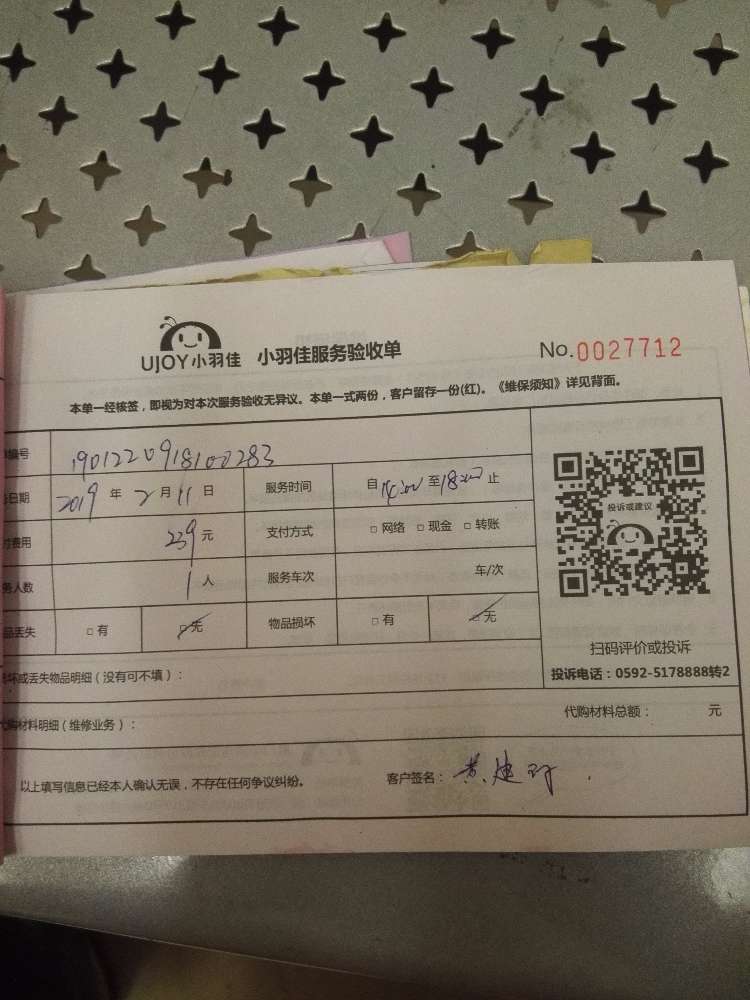 UJOY小羽佳 小羽佳服务验收单 No.0027712
本单一经核签，即视为对本次服务验收无异议。本单一式两份，客户留存一份(红)。《维保须知》详见背面。
编号 1901220918100283
日期 2019 年 2 月 11 日 服务时间 自 14:00 至 18:00 止
费用 239 元 支付方式 □ 网络 □ 现金 □ 转账
务人数 1 人 服务车次 车/次
品丢失 □ 有 □ 无 物品损坏 □ 有 □ 无
投诉或建议
扫码评价或投诉
投诉电话：0592-5178888转2
坏或丢失物品明细（没有可不填）：
代购材料明细（维修业务）： 代购材料总额： 元
以上填写信息已经本人确认无误，不存在任何争议纠纷。 客户签名： 黄建